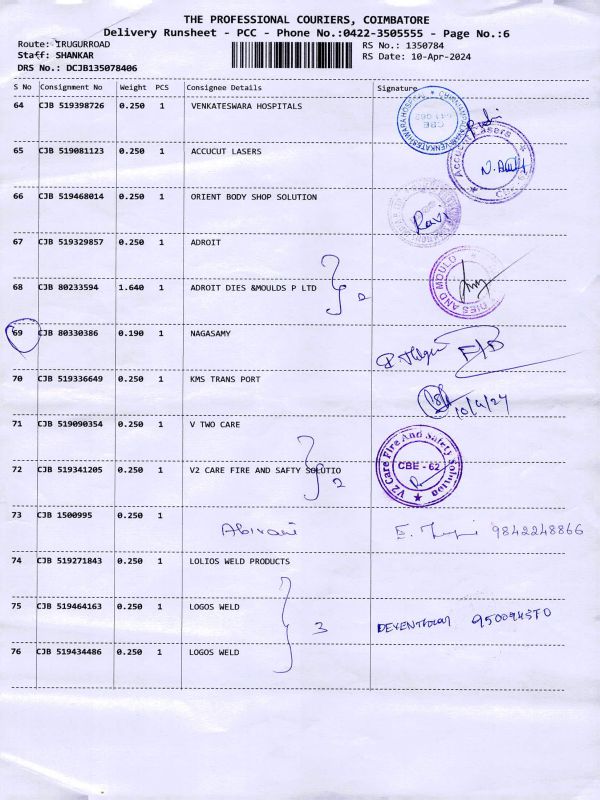 THE PROFESSIONAL COURIERS, COIMBATORE
Delivery Runsheet - PCC - Phone No.:0422-3505555 - Page No.:6
Route: IRUGURROAD RS No.: 1350784
Staff: SHANKAR RS Date: 10-Apr-2024
DRS No.: DCJB135078406
S No Consignment No Weight PCS Consignee Details Signature
64 CJB 519398726 0.250 1 VENKATESWARA HOSPITALS
CBE
65 CJB 519081123 0.250 1 ACCUCUT LASERS
Accucut Lasers
66 CJB 519468014 0.250 1 ORIENT BODY SHOP SOLUTION
Ravi
67 CJB 519329857 0.250 1 ADROIT
68 CJB 80233594 1.640 1 ADROIT DIES &MOULDS P LTD 2
DIES AND MOULD
69 CJB 80330386 0.190 1 NAGASAMY
70 CJB 519336649 0.250 1 KMS TRANS PORT
10/4/24
71 CJB 519090354 0.250 1 V TWO CARE
72 CJB 519341205 0.250 1 V2 CARE FIRE AND SAFTY SOLUTIO 2
V2 Care Fire And Safety Solution
CBE - 62
73 CJB 1500995 0.250 1 Abirami 9842248866
74 CJB 519271843 0.250 1 LOLIOS WELD PRODUCTS
75 CJB 519464163 0.250 1 LOGOS WELD
3
76 CJB 519434486 0.250 1 LOGOS WELD